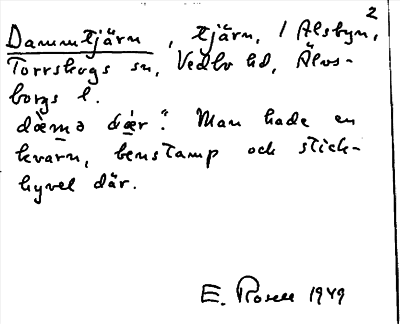 2
Dammtjärn, tjärn, i Alsbyn,
Torrskogs sn, Vedbo hd, Älvs-
borgs l.
dæ̀mə ʈæ̀r". Man hade en
kvarn, benstamp och stick-
hyvel där.
E. Rosell 1949